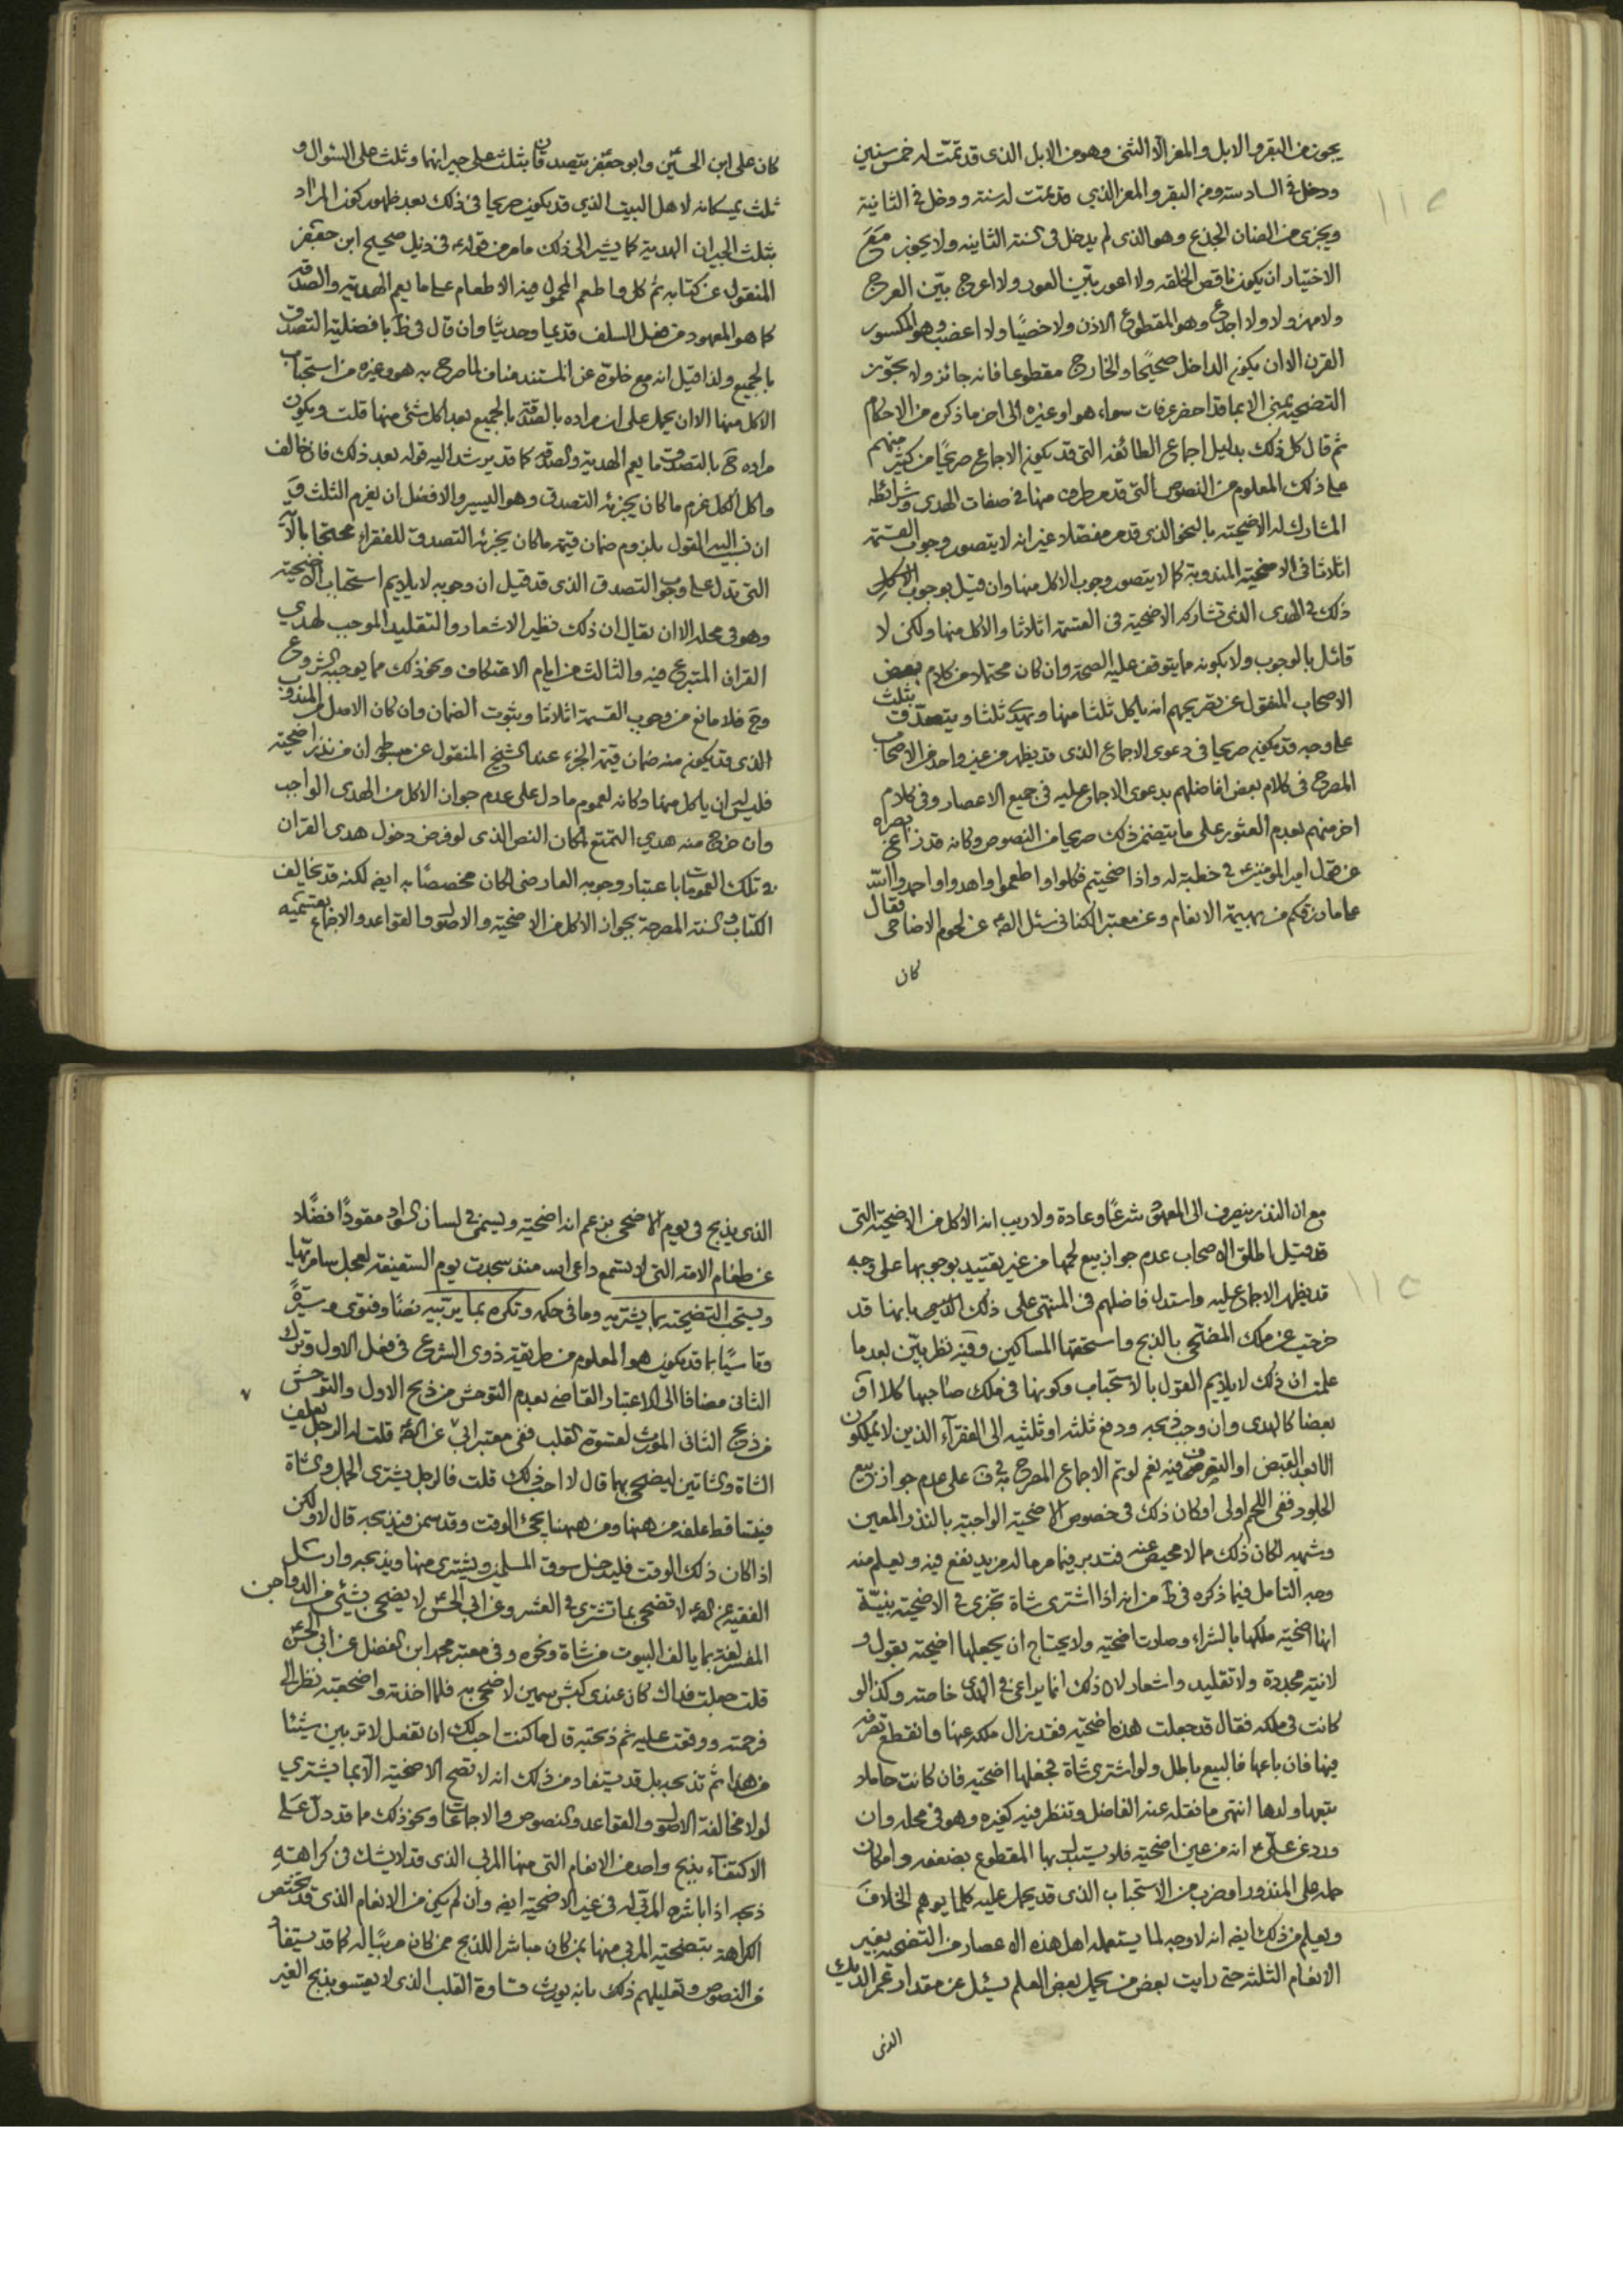 يجوز من البقر والابل والمعز الا الثنى وهو من الابل الذى قد تمّت له خمس سنين
ودخل فى السادسة ومن البقر والمعز الذي قد تمّت له سنة ودخل فى الثانية
ويجزى من الضان الجذع وهو الذى لم يدخل فى السنة الثانيه ولا يجوز مع
الاختيار ان يكون ناقص الخلقه ولا اعور بيّن العور ولا اعرج بيّن العرج
ولا مهزولا ولا اجدع وهو المقطوع الاذن ولا خصيًا ولا اعضب وهو المكسور
القرن الا ان يكون الداخل صحيحًا والخارج مقطوعا فانه جائز ولا يجوز
التضحية بمنى الا بما قد احضر عرفات سواء هو او غيره الى اخر ما ذكره من الاحكام
ثم قال كل ذلك بدليل اجماع الطائفه التى قد يكون الاجماع صريحًا من كثير منهم
على ذلك المعلوم من النصوص التى قد مر طرف منها فى صفات الهدى وشرائطه
المشارك له الاضحيته بالنحو الذى قد مر مفصلا غير انه لا يتصور وجوب القسمة
اثلاثا فى الاضحية المندوبة كما لا يتصور وجوب الاكل منها وان قيل بوجوب الاكل
ذلك فى الهدى الذى تشاركه الاضحية فى القسمة اثلاثا والاكل منها ولكن لا
قائل بالوجوب ولا بكونه مما يتوقف عليه الصحة وان كان محتملا من كلام بعض
الاصحاب المنقول عن تصريحهم انه ياكل ثلثا منها ويهدى ثلثا ويتصدق بثلث
على وجه قد يكون صريحا فى دعوى الاجماع الذى قد يظهر من غير واحد من الاصحاب
المصرح فى كلام بعض افاضلهم بدعوى الاجماع عليه فى جميع الاعصار وفى كلام
اخر منهم بعدم العثور على ما يتضمن ذلك صريحا من النصوص وكانه قد زاغ بصره
عن قول امير المؤمنين ع فى خطبة له واذا ضحيتم فكلوا واطعموا واهدوا واحمدوا الله
على ما رزقكم من بهيمة الانعام وعن معتبر الكنانى سئل الصه عن لحوم الاضاحى فقال
كان
كان على ابن الحسين وابو جعفر يتصدقان بثلث على جيرانهما وثلث على السؤال و
ثلث يمسكانه لاهل البيت الذي قد يكون صريحا فى ذلك بعد ظهور كون المراد
بثلث الجيران الهدية كما يشير الى ذلك ما مر من قوله ع فى ذيل صحيح ابن جعفر
المنقول عن كتابه ثم كل واطعم المحمول فيه الاطعام على ما يعم الهدية والصدقه
كما هو المعهود من فعل السلف قديما وحديثا وان قال فى ط بافضلية التصدق
بالجميع ولذا قيل انه مع خلوّه عن المستند مناف لما صرح به هو وغيره من استحباب
الاكل منها الا ان يحمل على ان مراده بالصدقة بالجميع بعد اكل شئ منها قلت ويكون
مراده ح بالتصدق ما يعم الهدية والصدقه كما قد يرشد اليه قوله بعد ذلك فان خالف
واكل الكل غرم ما كان يجزئه التصدق وهو اليسير والافضل ان يغرم الثلث وح
ان نسب اليه القول بلزوم ضمان قيمة ما كان يجزئه التصدق للفقراء محتجا بالآية
التى تدل على وجوب التصدق الذى قد قيل ان وجوبه لا يلايم استحباب الاضحيته
وهو فى محله الا ان يقال ان ذلك نظير الاشعار والتقليد الموجب لهدي
القران المتبرع فيه والثالث من ايام الاعتكاف ونحو ذلك مما يوجبه الشروع
وح فلا مانع من وجوب القسمة اثلاثا وبثبوت الضمان وان كان الاصل المندوب
الذى قد يكون منه ضمان قيمة الجزء عند الشيخ المنقول عن مبسوطه ان من نذر اضحيته
فليس له ان ياكل منها وكانه لعموم ما دل على عدم جواز الاكل من الهدى الواجب
وان خرج منه هدي التمتع لمكان النص الذى لو فرض دخول هدى القران
فى تلك العمومات باعتبار وجوبه العارضى لكان مخصصًا به ايضه لكنه قد يخالف
الكتاب والسنه المصرحة بجواز الاكل من الاضحيته والاصول والقواعد والاجماع بقسميه
مع ان النذر ينصرف الى المعهود شرعًا وعادة ولا ريب انه الاكل من الاضحيته التى
قد قيل اطلق الاصحاب عدم جواز بيع لحمها من غير تقييد بوجوبها على وجه
قد يظهر الاجماع عليه واستدل فاضلهم فى المنتهى على ذلك بانها قد
خرجت عن ملك المضحى بالذبح واستحقها المساكين وفيه نظر بيّن بعد ما
علمت ان ذلك لا يلايم القول بالاستحباب وكونها فى ملك صاحبها كلا او
بعضا كالهدى وان وجب ذبحه ودفع ثلثه او ثلثيه الى الفقراء الذين لا يملكون
الا بعد القبض او التصرف فيه نعم لو تم الاجماع المصرح به فى ف على عدم جواز بيع
الجلود ففى اللحم اولى او كان ذلك فى خصوص الاضحية الواجبة بالنذر المعين
وشبهه لكان ذلك مما لا محيص عنه فتدبر فيما مر ما له مزيد نفع فيه ويعلم منه
وجه التامل فيما ذكره فى ط من انه اذا اشترى شاة تجزى فى الاضحية بنيّة
انها اضحية ملكها بالشراء وصارت اضحيته ولا يحتاج ان يجعلها اضحية بقول و
لا نية مجددة ولا تقليد واشعار لان ذلك انما يراعى فى الهدى خاصة وكذا لو
كانت فى ملكه فقال قد جعلت هذه اضحيته فقد زال ملكه عنها وانقطع تصرفه
فيها فان باعها فالبيع باطل ولو اشترى شاة فجعلها اضحيته فان كانت حاملا
تبعها ولدها انتهى ما نقله عنه الفاضل وتنظر فيه كغيره وهو فى محله وان
ورد عن على ع انه من عين اضحيته فلا يستبدل بها المقطوع بضعفه وامكان
حمله على المنذور او ضرب من الاستحباب الذى قد يحمل عليه كلما يوهم الخلاف
ويعلم من ذلك ايضه انه لا وجه لما يستعمله اهل هذه الاعصار من التضحيه بغير
الانعام الثلثه حتى رايت بعض من يحمل بعض العلم يسئل عن مقدار عمر الديك
الذى
الذى يذبح فى يوم الاضحى بزعم انه اضحيته ويسمى فى لسان السواد مقودًا فضلا
عن طغام الامة التى لا يستمع داعى منذ سجدت يوم السقيفة لعجل سامريّها
ويستحب التضحيته بما يشتريه وما فى حكمه وتكره بما يربّيه نصًا وفتوى وسيرةً
وتاسّيًا بما قد يكون هو المعلوم من طريقة ذوى الشرع فى فعل الاول وترك
الثانى مضافا الى الاعتبار القاضى بعدم التوحش من ذبح الاول والتوحش
من ذبح الثانى المورث لقسوة القلب ففى معتبر ابى عن الصه قلت له الرجل يعلف
الشاة والشاتين ليضحى بها قال لا احب ذلك قلت فالرجل يشترى الجمل والشاة
فيتساقط علفه من هيهنا ومن هيهنا يجئ الوقت وقد سمن فيذبحه قال لا ولكن
اذا كان ذلك الوقت فليدخل سوق المسلمين ويشترى منها ويذبحه وارسل
الفقيه عن الصه لا تضحى بما تشترى فى العشر وعن ابى الحسن لا يضحى بشئ من الدواجن
المفسر لغة بما يالف البيوت من شاة ونحوه وفى معتبر محمد ابن الفضل عن ابى الحسن
قلت جعلت فداك كان عندى كبش سمين لاضحى به فلما اخذته واضجعته نظر الى
فرحمته ورققت عليه ثم ذبحته قال ما كنت احب لك ان تفعل لا تربين شيئا
من هذا ثم تذبحه بل قد يستفاد من ذلك انه لا تصح الاضحية الا بما يشتري
لولا مخالفة الاصول والقواعد والنصوص والاجماعات ونحو ذلك مما قد دل على
الاكتفاء بذبح واحد من الانعام التى منها المربى الذى قد لا يشك فى كراهته
ذبحه اذا باشره المربّى له فى غير الاضحية ايضه وان لم يكن من الانعام الذى قد تختص
الكراهة بتضحيته المربى منها بمن كان مباشرا للذبح ممن كان مربّيًا له كما قد يستفاد
من النصوص وتعليلهم ذلك بانه يورث قساوة القلب الذى لا يقسو بذبح الغير